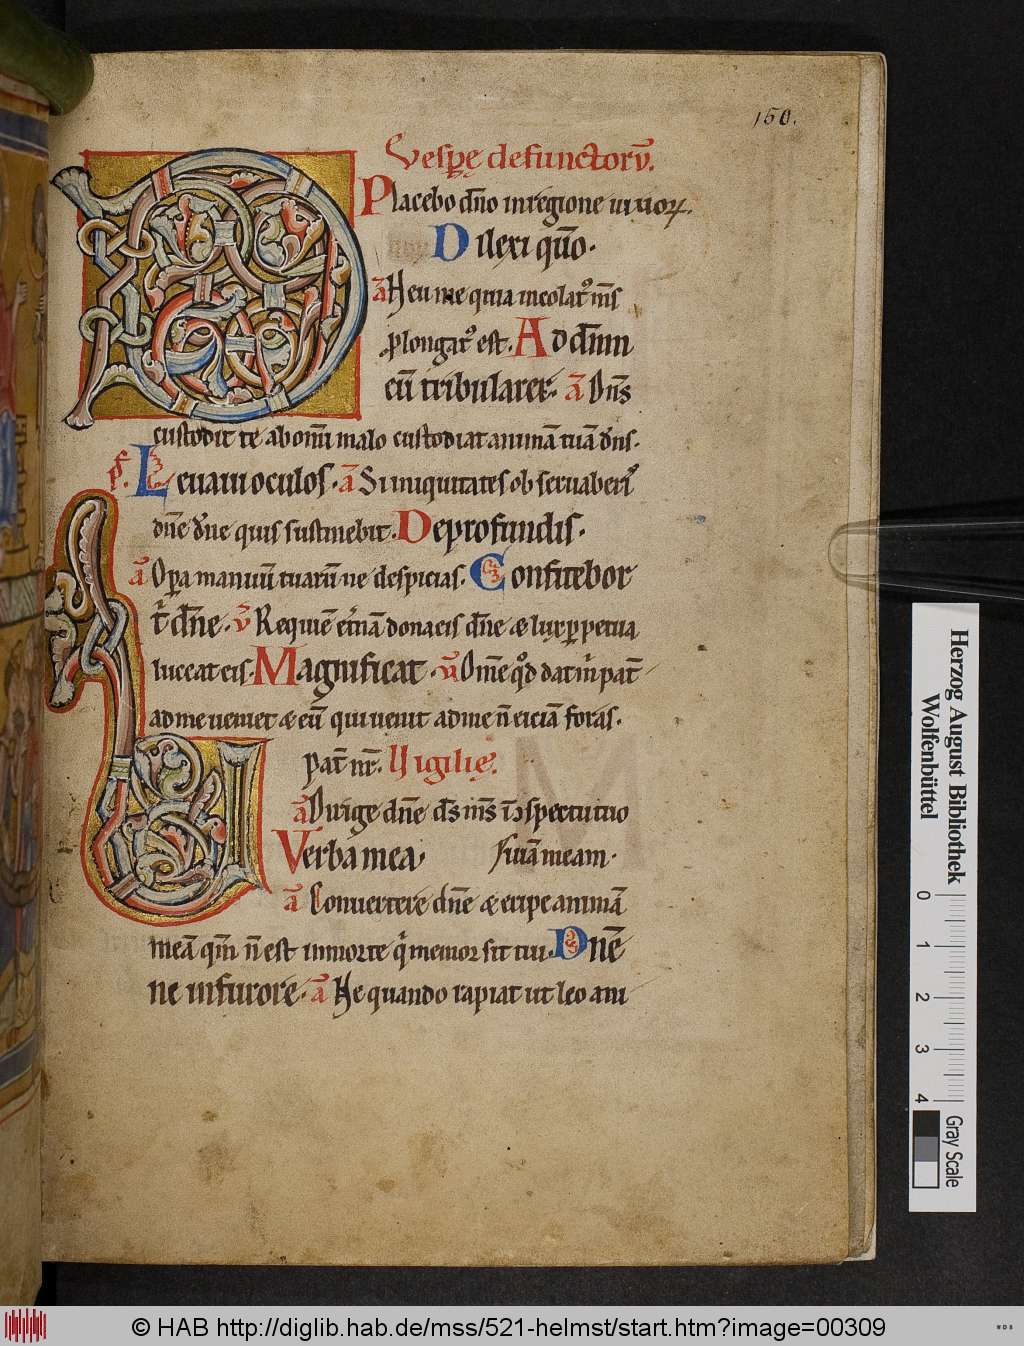 150.
Vesꝑę defunctorū.
Placebo dño in regione uiuoꝝ.
Dilexi qm̄o.
a᷈ Heu me quia incolatꝰ mīs
ꝓlongatꝰ est. Ad dñm
cū tribularer. a᷈ Dñs
custodit te ab om̄i malo custodiat animā tuā dñs.
Leuaui oculos. a᷈ Si iniquitates obseruaberis
dñe dñe quis sustinebit. De profundis.
a᷈ Oꝑa manuū tuarū ne despicias. Confitebor
t̄ dñe. v̄ Requiē et̄nā dona eis dñe & lux ꝑpetua
luceat eis. Magnificat. a᷈ Om̄e qđ dat m̄ pat̄
ad me ueniet & eū qui uenit ad me n̄ eiciā foras.
pat̄ nr̄. Vigilię.
a᷈ Dirige dñe ds̄ ms̄ ī ɔspectu tuo
Verba mea. uiam meam.
a᷈ Conuertere dñe & eripe animā
meā qm̄ n̄ est in morte q̄ memor sit tui. Dñe
ne in furore. a᷈ Ne quando rapiat ut leo ani
Herzog August Bibliothek
Wolfenbüttel
0 1 2 3 4
Gray Scale
© HAB http://diglib.hab.de/mss/521-helmst/start.htm?image=00309